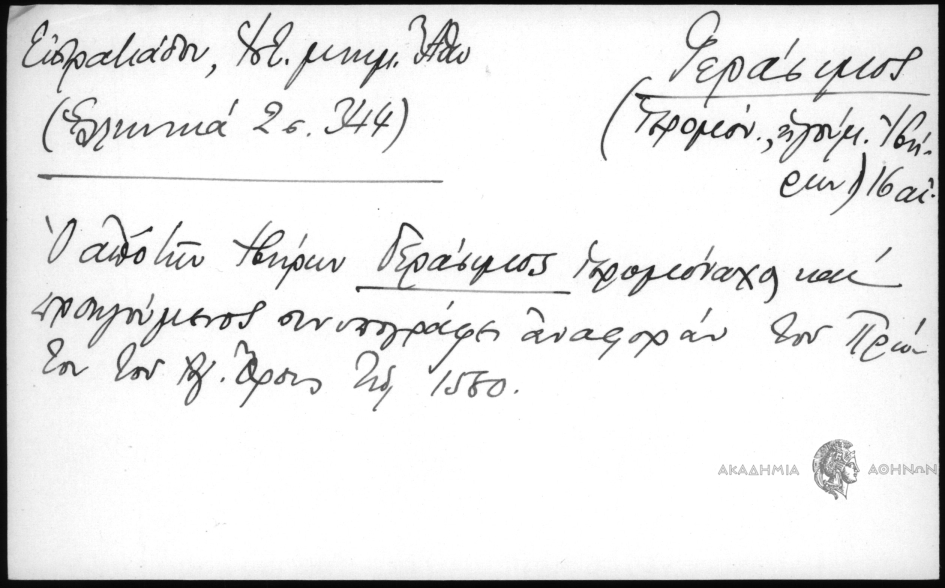 Εὐστρατιάδου, Ἱστ. μνημ. Ἄθω
(Ἑλληνικά 2 σ. 344)
Γεράσιμος
(Ἱερομόν., ἡγούμ. Ἰβή-
ρων) 16 αἰ.
Ὁ ἀπὸ τῶν Ἰβήρων Γεράσιμος ἱερομόναχος καί
προηγούμενος συνυπογράφει ἀναφοράν τοῦ Πρώ
του τοῦ Ἁγ. Ὄρους τῷ
ΑΚΑΔΗΜΙΑ ΑΘΗΝΩΝ